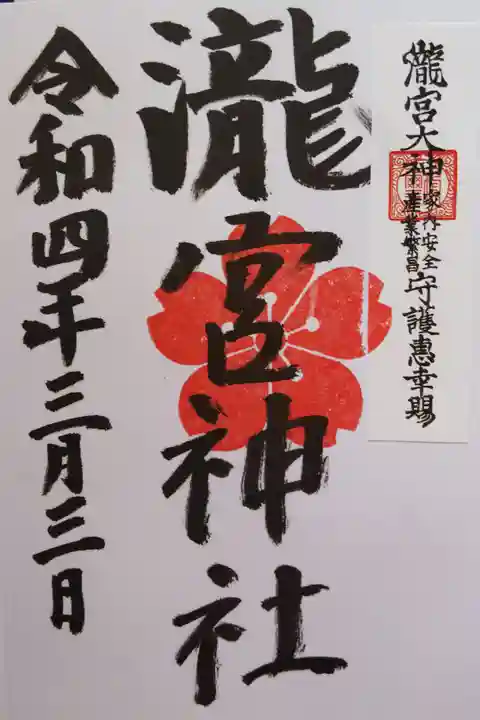 瀧宮大神
家内安全
産業繁昌
守護恵幸賜
瀧宮神社
令和四年三月三日